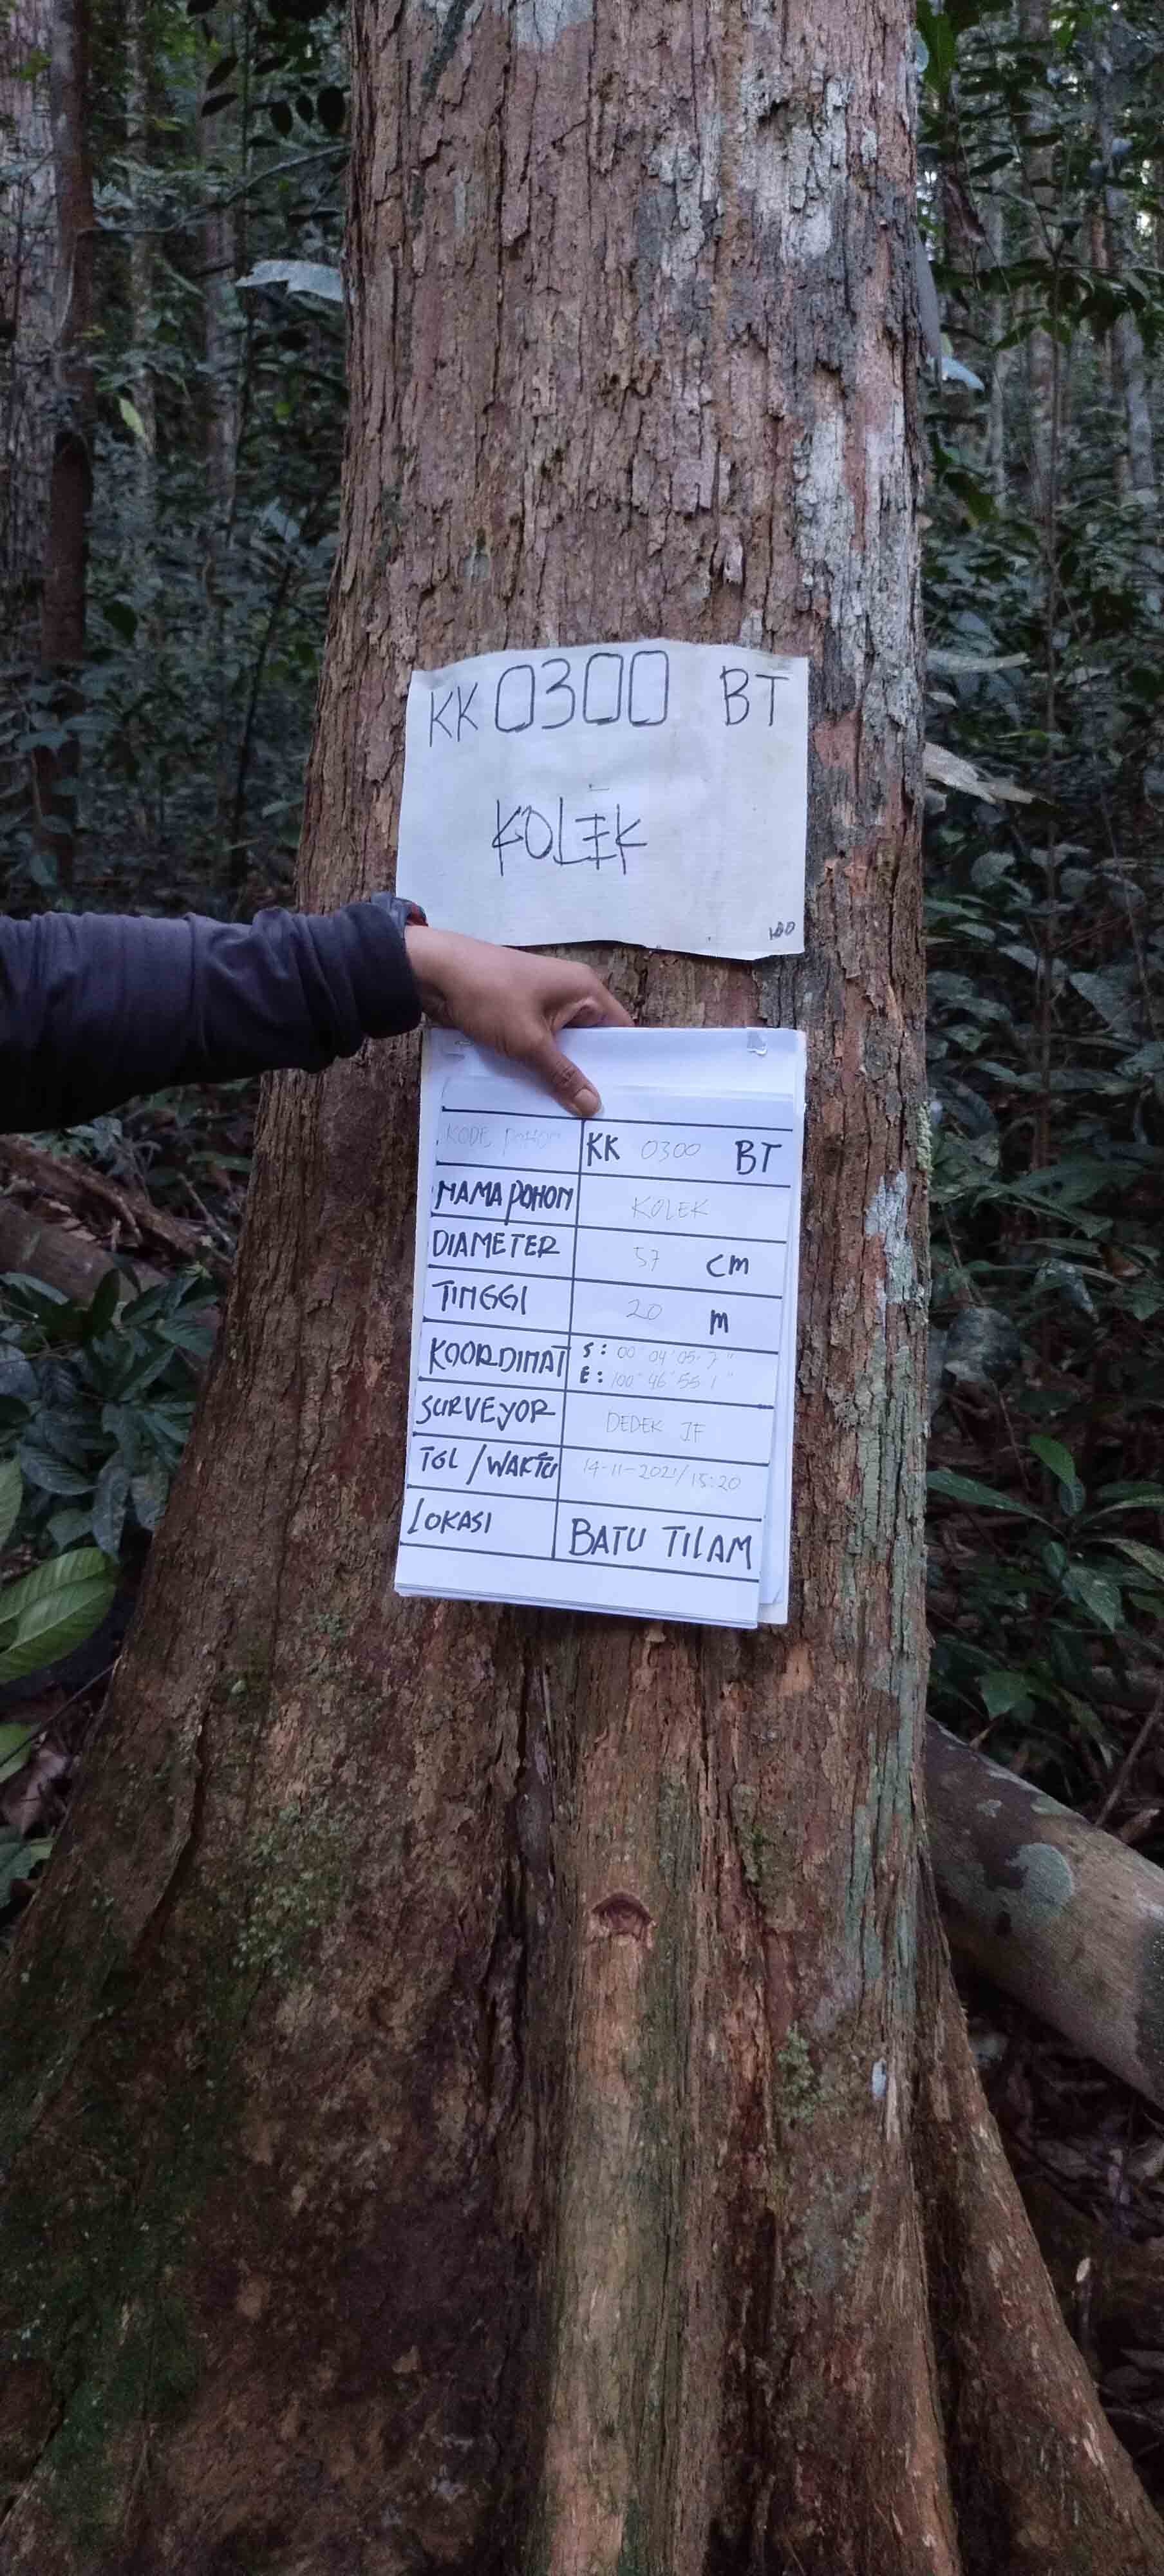 KK 0300 BT
KOLEK
100
KODE POHON KK 0300 BT
NAMA POHON KOLEK
DIAMETER 57 cm
TINGGI 20 m
KOORDINAT S: 00° 04' 05.7"
E: 100° 46' 55.1"
SURVEYOR DEDEK JF
TGL/WAKTU 14-11-2021/15:20
LOKASI BATU TILAM